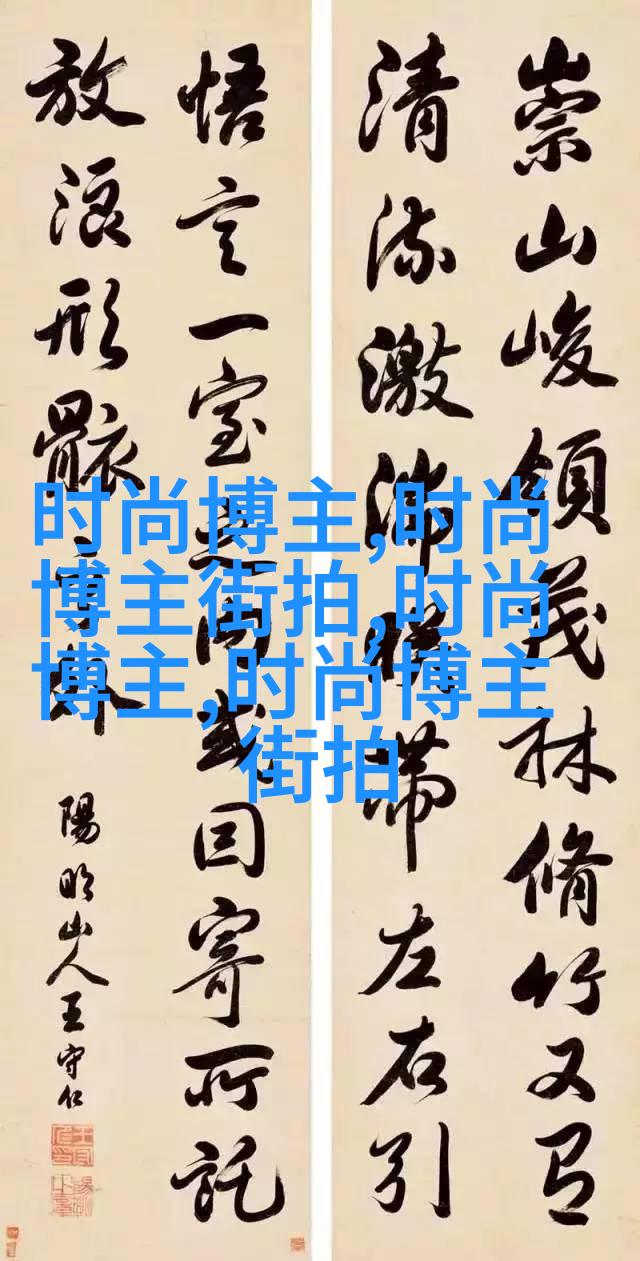 崇山峻領茂林脩竹又有
清流激湍暎帶左右引
悟言一室之內或因寄所託
放浪形骸之外
陽明山人王守仁
时尚博主,时尚
博主街拍,时尚
博主,时尚博主
街拍